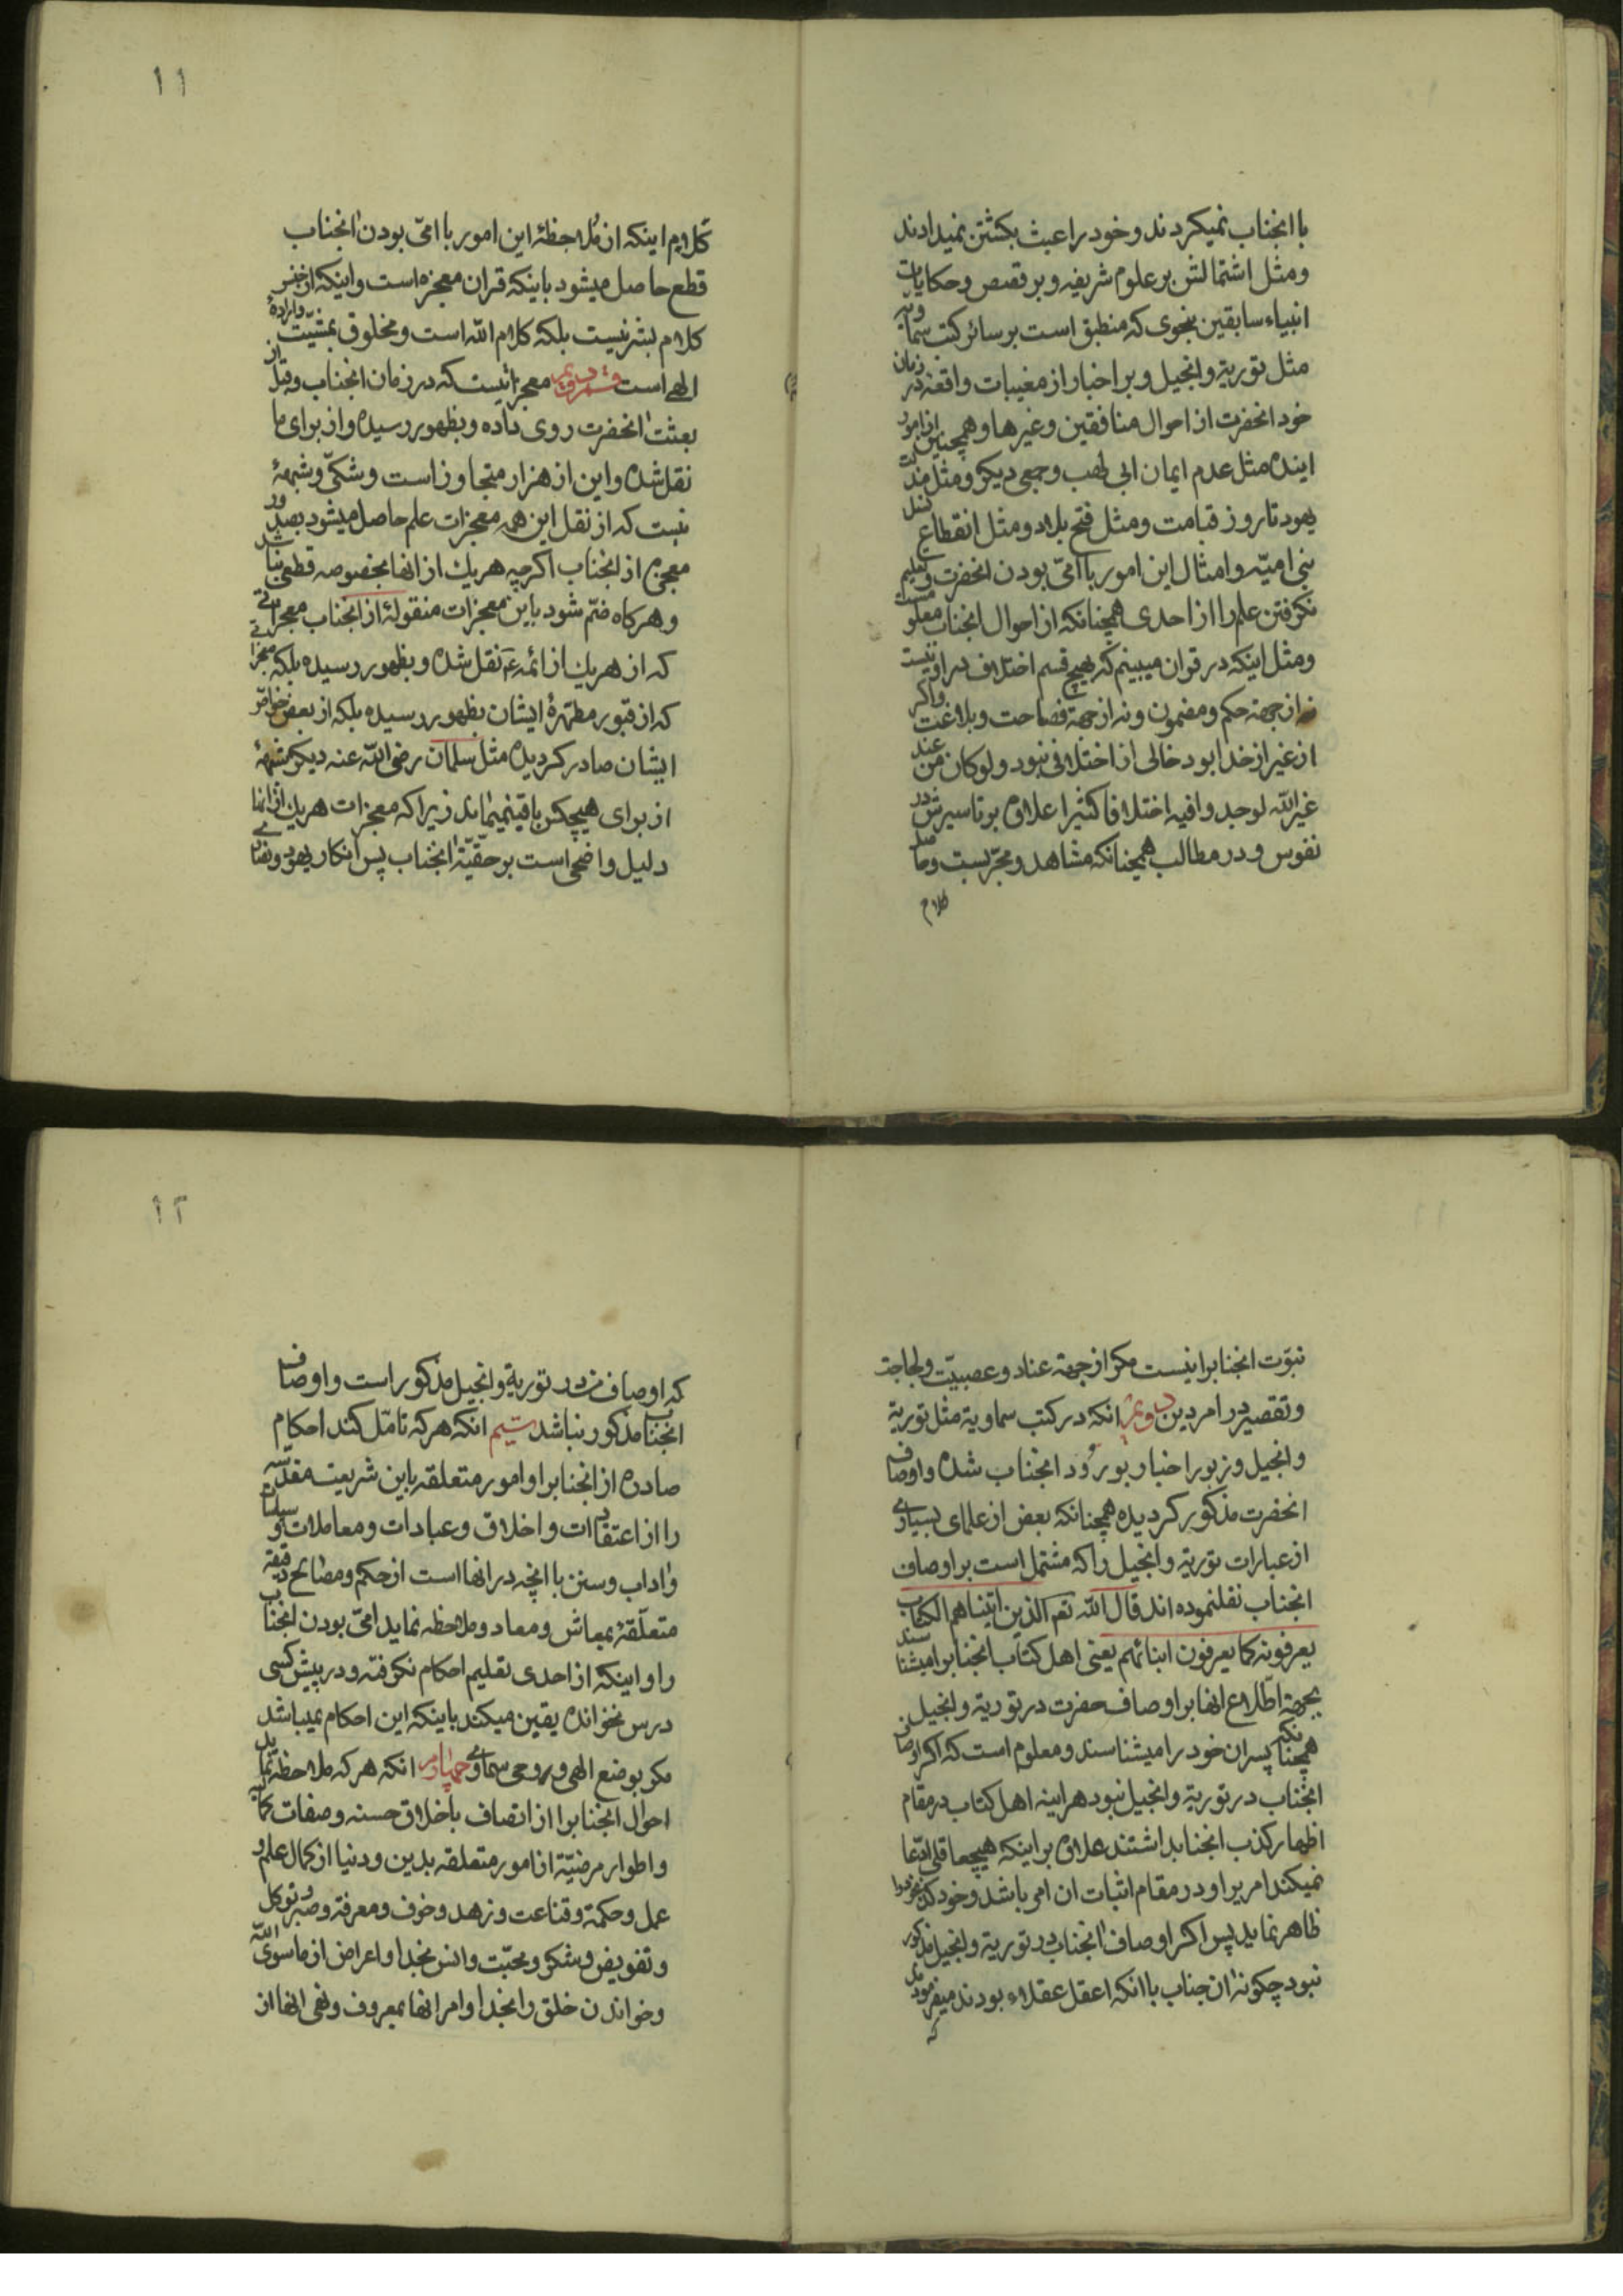 با انجناب نمیکردند و خود را عبث بکشتن نمیدادند
ومثل اشتمالش بر علوم شریفه و بر قصص و حکایات
انبیاء سابقین بنحوی که منطبق است بر سائر کتب سماویه
مثل توریة و انجیل و بر اخبار از مغیبات واقعه در زمان
خود انحضرت از احوال منافقین و غیرها و همچنین از امور
اینده مثل عدم ایمان ابی لهب و جمعی دیکر و مثل مذلت
یهود تا روز قیامت و مثل فتح بلاد و مثل انقطاع نسل
بنی امیّه و امثال این امور با امّی بودن انحضرت و تعلیم
نکرفتن علم را از احدی همچنانکه از احوال انجناب معلومست
ومثل اینکه در قران میبینم که بهیچ قسم اختلاف در او نیست
نه از جهة حکم و مضمون و نه از جهة فصاحت و بلاغت و اکر
از غیر از خدا بود خالی از اختلافی نبود و لو کان من عند
غیر الله لوجدوا فیه اختلافا کثیرا علاوه بر تاسیرش در
نفوس و در مطالب همچنانکه مشاهد و مجرّبست و حاصل
کلام
۱۱
کلام اینکه از ملاحظهٔ این امور با امّی بودن انجناب
قطع حاصل میشود باینکه قران معجزه است و اینکه از جنس
کلام بشر نیست بلکه کلام الله است و مخلوق بمشیّت و ارادهٔ
الهی است معجزاتیست که در زمان انجناب و قبل از
بعثت انحضرت روی داده و بظهور رسیده و از برای ما
نقل شده و این از هزار متجاوز است و شکّی و شبههٔ
نیست که از نقل این همه معجزات علم حاصل میشود بصدور
معجزه از انجناب اکر چه هریك از انها بخصوصه قطعی نباشد
و هرکاه ضمّ شود باین معجزات منقولهٔ از انجناب معجزاتی
که از هریك از ائمه ع نقل شده و بظهور رسیده بلکه معجزاتی
که از قبور مطهرهٔ ایشان بظهور رسیده بلکه از بعض خواصّ
ایشان صادر کردیده مثل سلمان رضی الله عنه دیکر شبههٔ
از برای هیچکس باقی نمیماند زیرا که معجزات هریك از انها
دلیل واضحی است بر حقیّة انجناب پس انکار یهود و نصاری
نبوّت انجنابرا نیست مکر از جهة عناد و عصبیّت و لجاجة
و تقصیر در امر دین انکه در کتب سماویة مثل توریة
و انجیل و زبور اخبار بورود انجناب شده و اوصاف
انحضرت مذکور کردیده همچنانکه بعض از علمای بسیاری
از عبارات توریة و انجیل را که مشتمل است بر اوصاف
انجناب نقلنموده اند قال الله تعم الذین اتیناهم الکتاب
یعرفونه کما یعرفون ابنائهم یعنی اهل کتاب انجنابرا میشناسند
بجهة اطّلاع انها بر اوصاف حضرت در توریة و انجیل
همچنانکه پسران خود را میشناسند و معلوم است که اکر اوصاف
انجناب در توریة و انجیل نبود هراینه اهل کتاب در مقام
اظهار کذب انجناب بداشتند علاوه بر اینکه هیچ عاقلی ادّعا
نمیکند امریرا و در مقام اثبات ان امر باشد و خود کذب خود را
ظاهر نماید پس اکر اوصاف انجناب در توریة و انجیل مذکور
نبود چکونه ان جناب با انکه اعقل عقلاء بودند میفرمودند
که
۱۲
که اوصاف من در توریة و انجیل مذکور است و اوصاف
انجناب مذکور نباشد سیّم انکه هرکه تامّل کند احکام
صادره از انجنابرا و امور متعلقه باین شریعت مقدّسه
را از اعتقادات و اخلاق و عبادات و معاملات و سیاسات
و اداب و سنن با انچه در انها است از حکم و مصالح دقیقة
متعلّقهٔ بمعاش و معاد و ملاحظه نماید امّی بودن انجناب
را و اینکه از احدی تعلیم احکام نکرفته و در پیش کسی
درس نخوانده یقین میکند باینکه این احکام نمیباشد
مکر بوضع الهی و بروحی سماوی چهارم انکه هرکه ملاحظه نماید
احوال انجنابرا از اتصاف باخلاق حسنه و صفات کمالیه
و اطوار مرضیّة از امور متعلقه بدین و دنیا از کمال علم و
عمل و حکمة و قناعت و زهد و خوف و معرفة و صبر و توکل
و تفویض و شکر و محبّت و انس بخدا و اعراض از ما سوی الله
و خواندن خلق را بخدا و امر انها بمعروف و نهی انها از